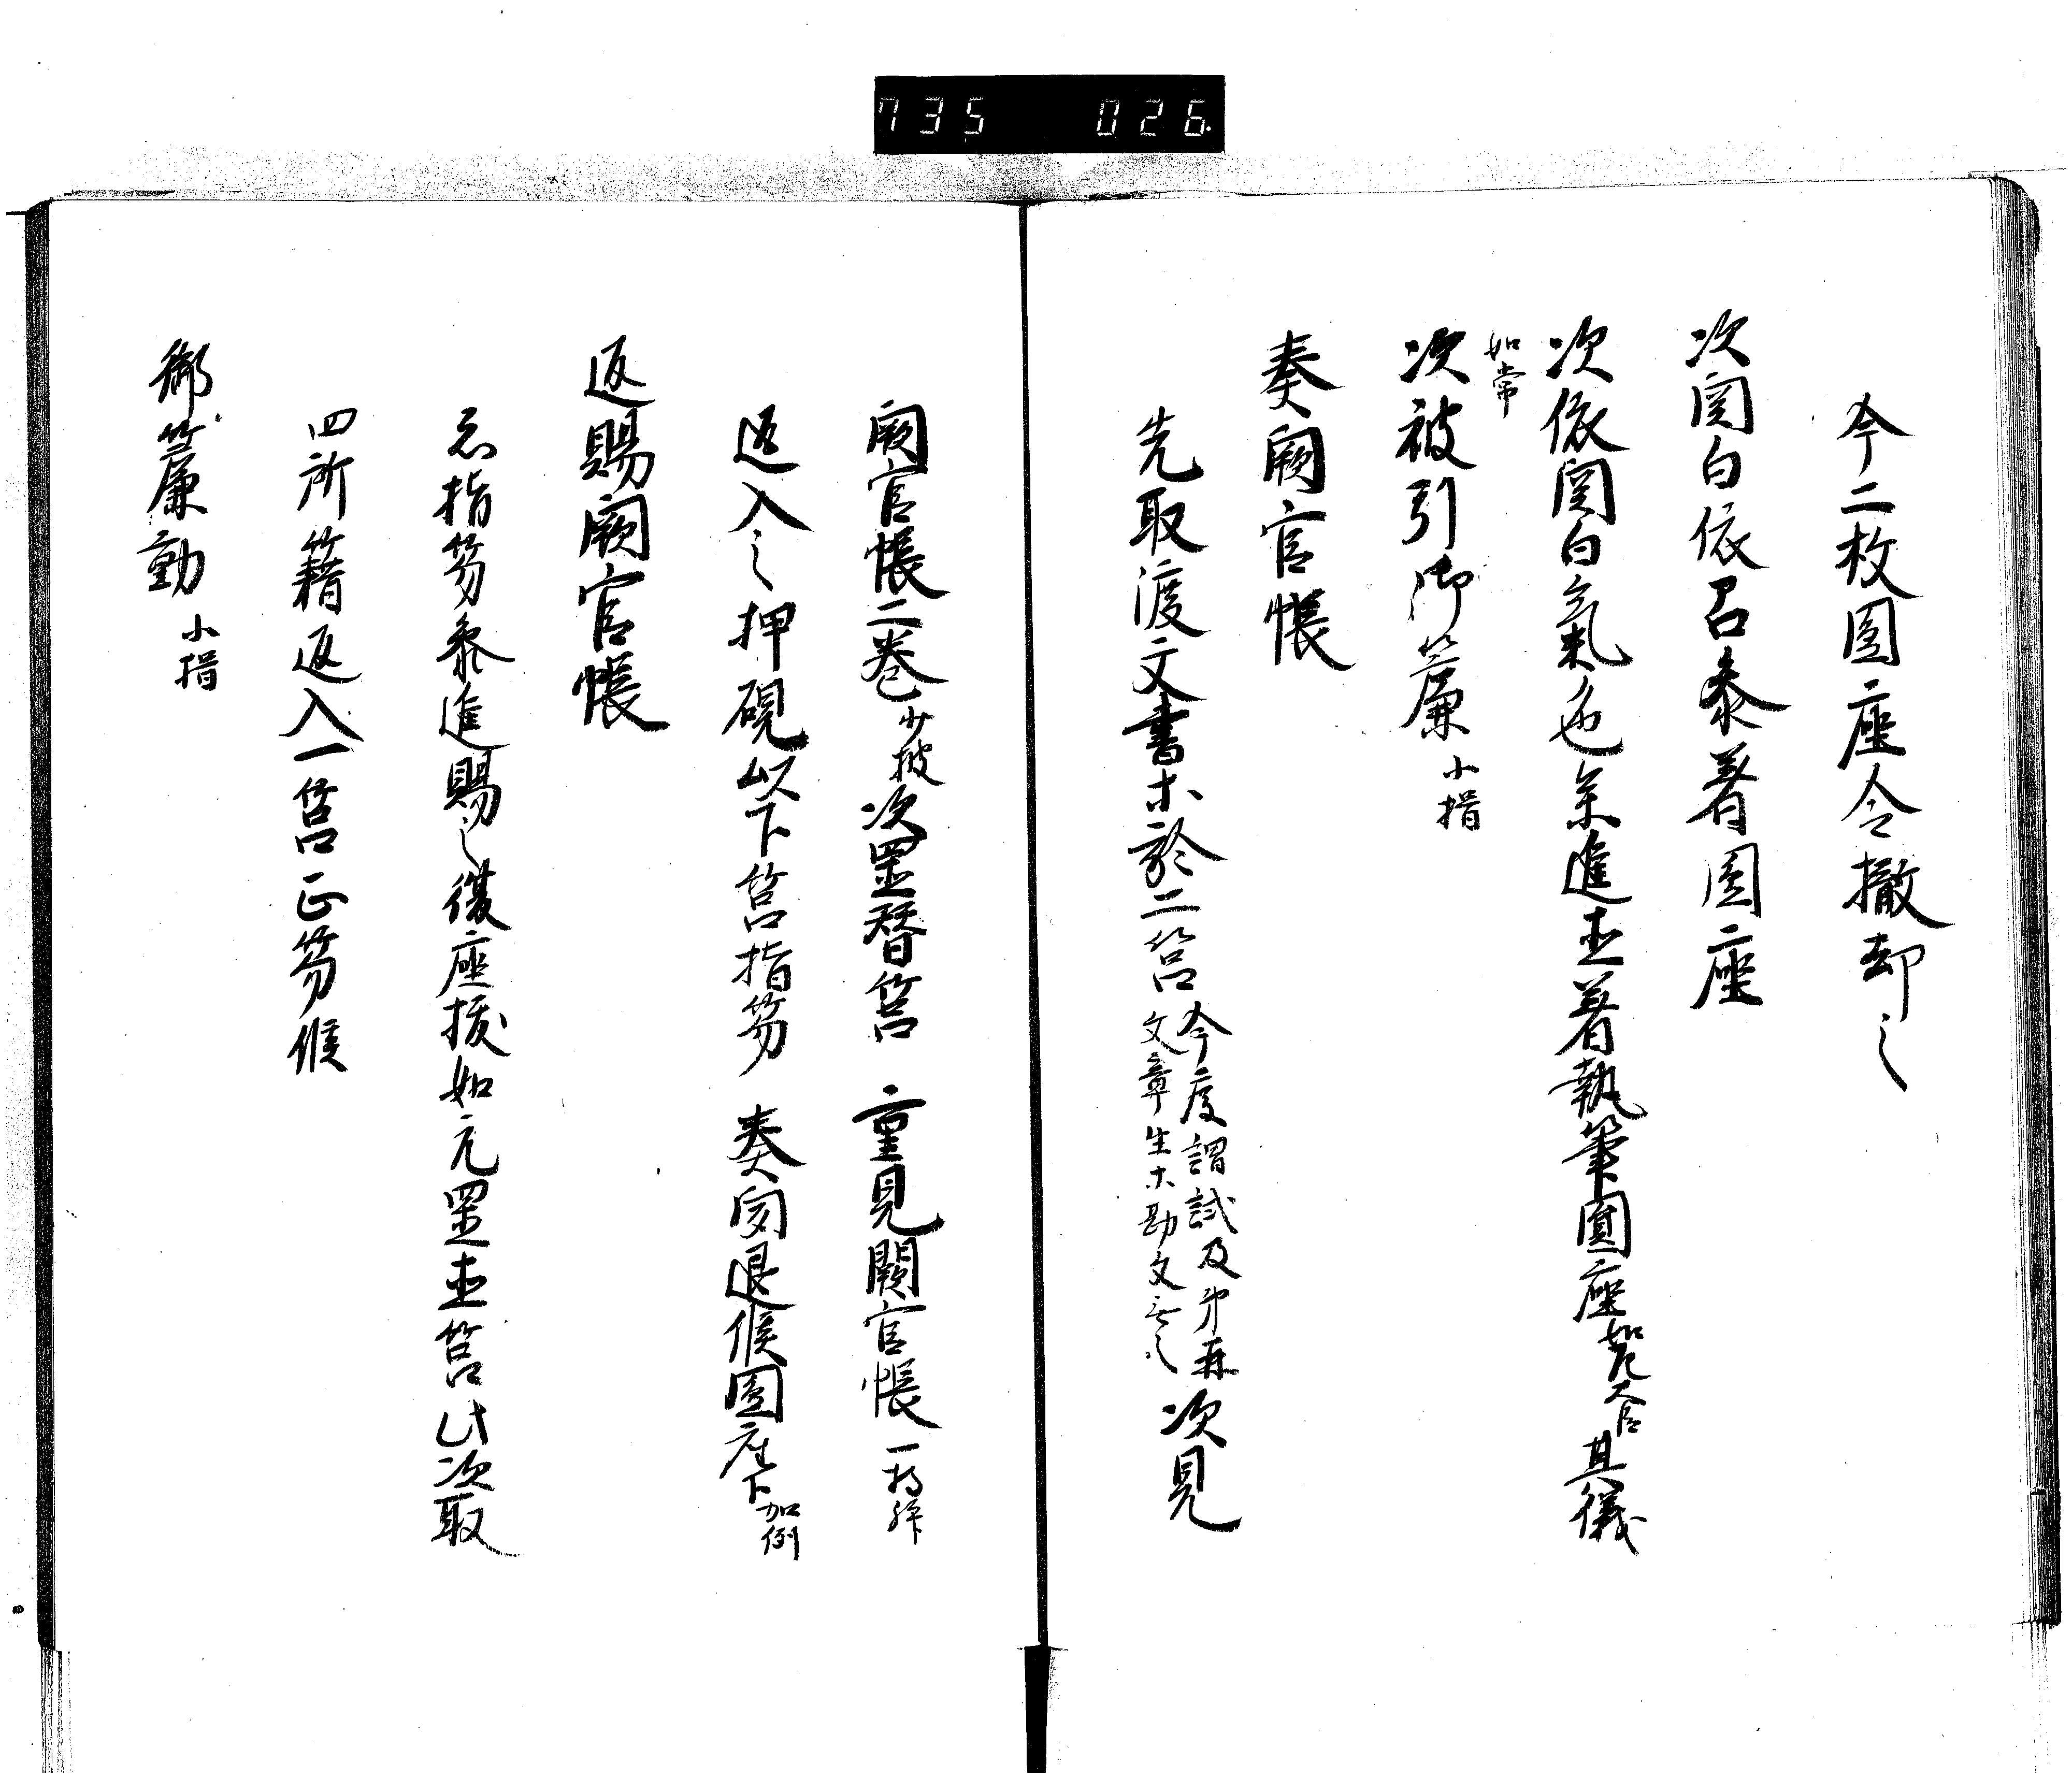 735 026
今二枚圓座令撤却之
次関白依召参着圓座
次依関白氣色参進候着執筆圓座
其儀
如常
次被引御簾 小揖
奏闕官帳
先取渡文書ホ於二筥 今度謂試及第
文章生ホ勘文
次見
闕官帳二巻 少披 次置替筥 重見闕官帳
返入之押硯以下筥指笏 奏図退候圓座下 如例
返賜闕官帳
指笏参進賜之復座抜如元置筥 次取
四所籍返入一筥正笏候
御簾動 小揖